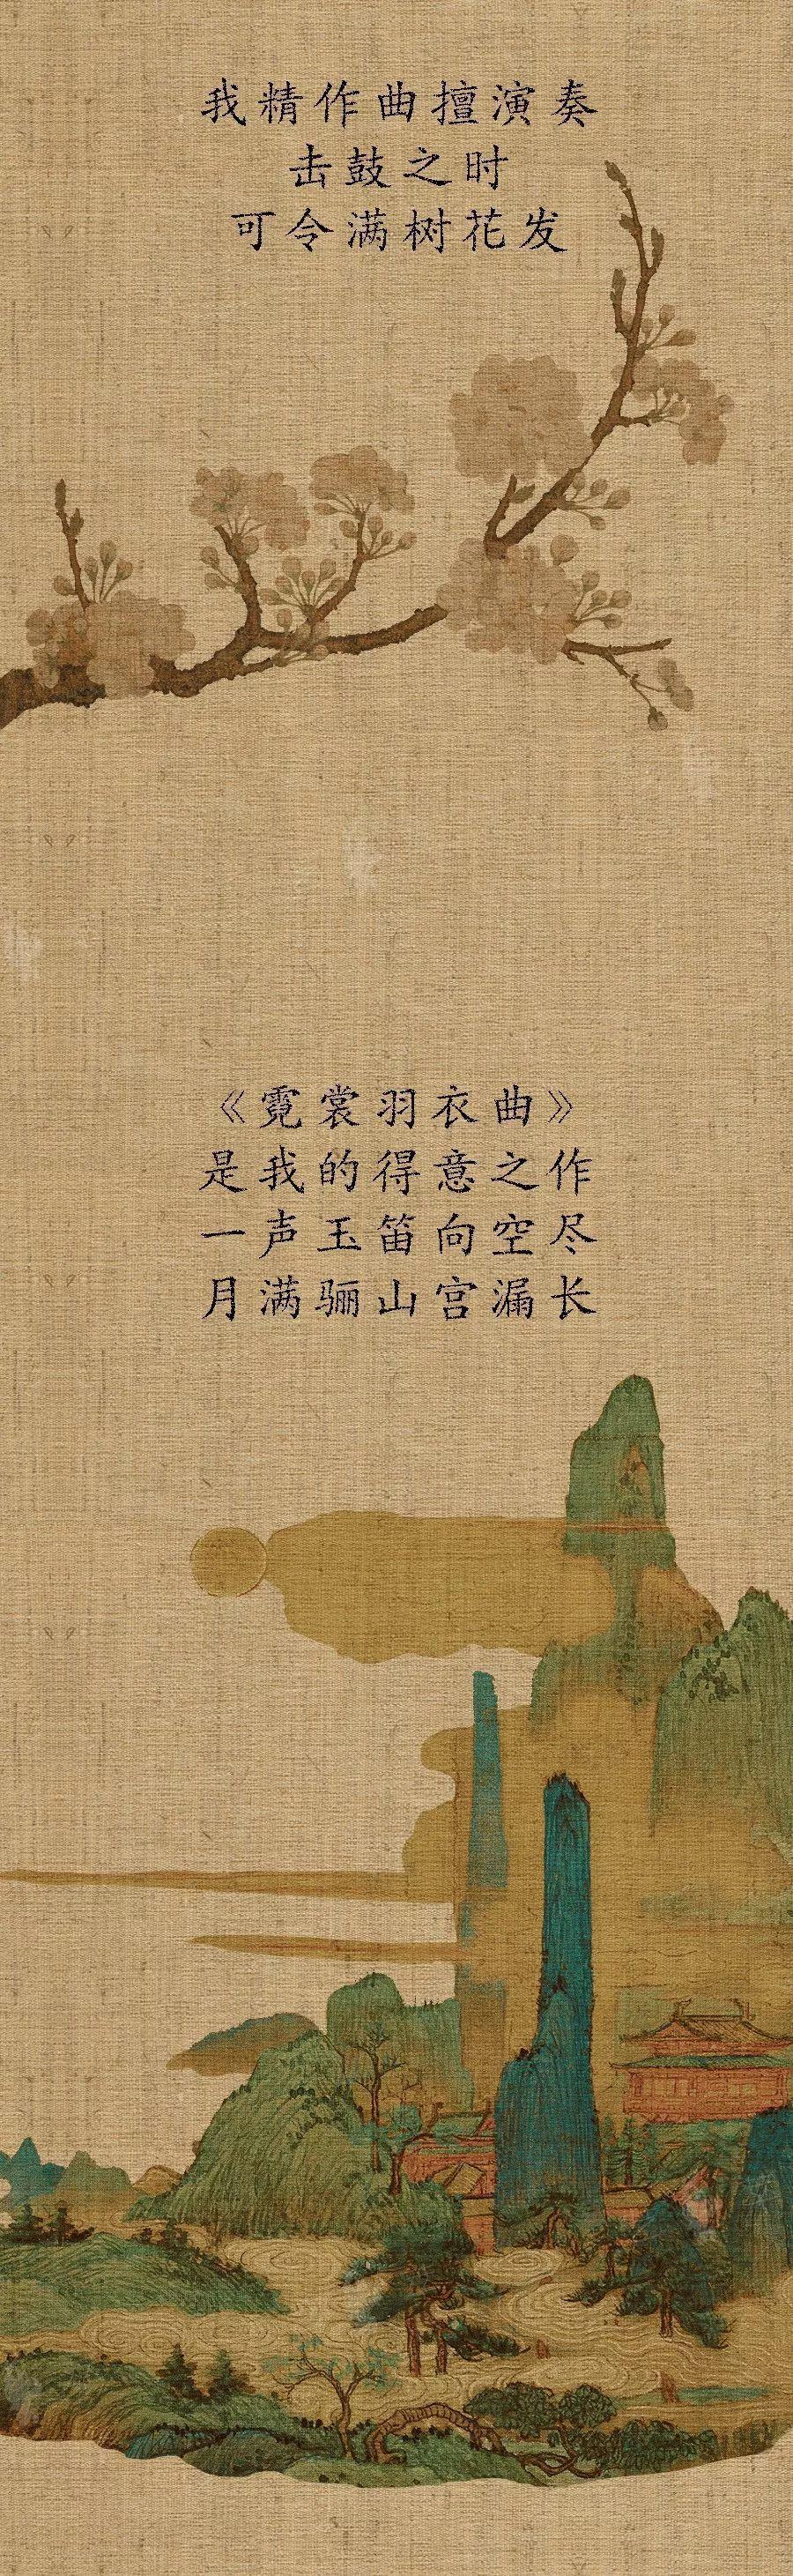 我精作曲擅演奏
击鼓之时
可令满树花发
《霓裳羽衣曲》
是我的得意之作
一声玉笛向空尽
月满骊山宫漏长